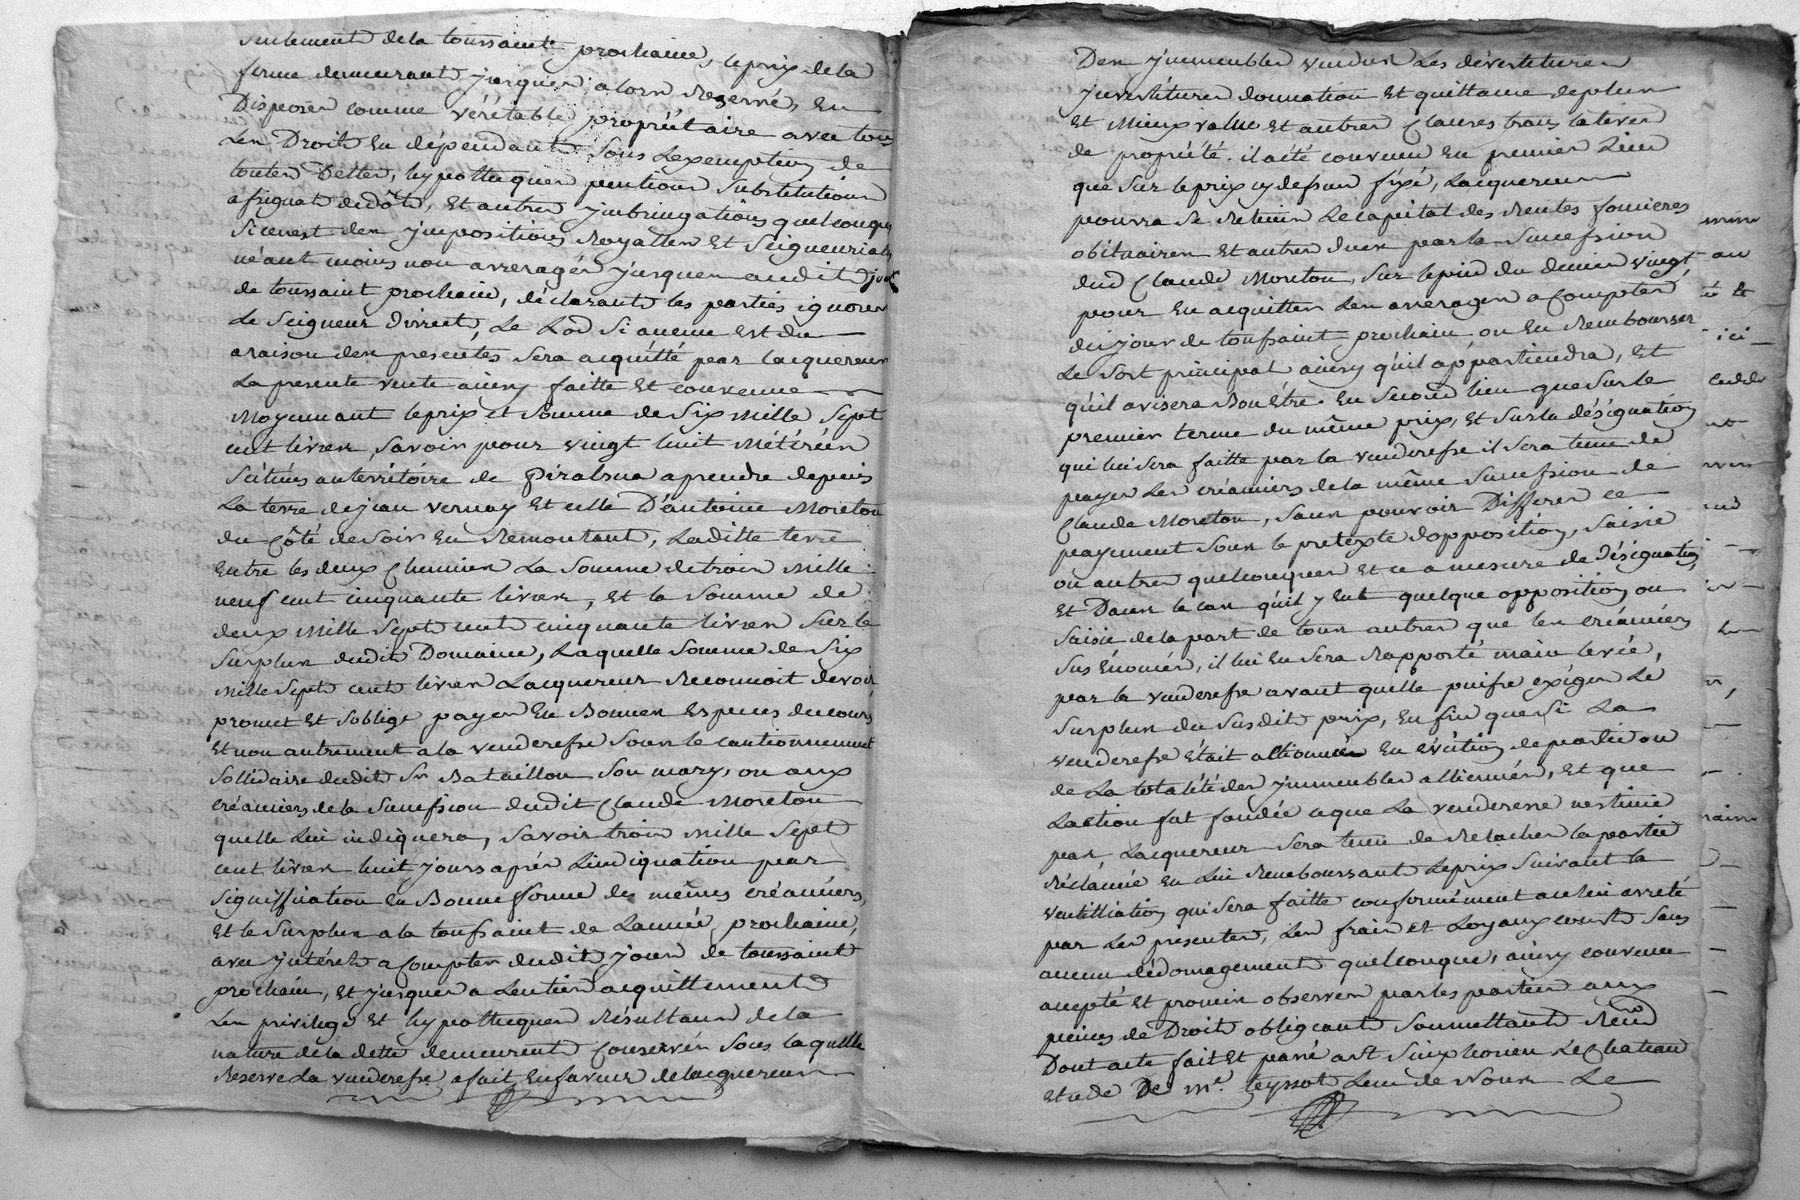 seulement de la toussaint prochaine, le prix de la
ferme demeurant jusques alors reservé, en
Disposer comme véritable propriétaire avec tous
Les Droits en dépendant sous Lexemption de
toutes Dettes, hypotheques pentions substitutions
assignat dedôts, et autres jmbringations quelconques
Si cenest des jmpositions Royalles et Seigneuriales
néant moins non arreragés jusques audit jour
de toussaint prochain, déclarants les parties ignorer
Le Seigneur direct, Le Lod Si aucun est du
araison des presentes sera acquitté par lacquereur
La presente vente ainsy faitte et convenue
Moyennant leprix et Somme de Six mille Sept
cent livres, savoir pour vingt huit Métérées
Scitués auterritoire de aprendre depuis
La terre de jean vernay et celle D'antoine Moreton
du Côté de soir en Remontant, Laditte terre
Entre les deux Chemins La Somme de trois mille
neuf cent cinquante livres, et la Somme de
deux mille Sept cent cinquante livres sur le
Surplus dudit Domaine, Laquelle Somme de Six
mille Sept cent livres Lacquereur Reconnoit devoir,
promet et soblige payer en Bonnes Especes du cours
et non autrement ala venderesse sous le cautionnement
Sollidaire dudit Sr Bataillon son mary, ou aux
créanciers de la Succession dudit Claude Moreton
quelle Lui indiquera, savoir trois mille Sept
cent livres huit jours après Lindiquation par
Signiffication en Bonne forme des mêmes créanciers,
et le surplus a la toussaint de Lannée prochaine,
avec jntérêts a Compter dudit jour de toussaint
prochain, et jusques a Lentier acquittement
Les privilege et hypotheques Résultans de la
nature de la dette demeurent Conservés sous laquelle
Reserve La venderesse a fait en faveur de lacquereur
Des jmmeubles vendus Les dévestitures
jnvestitures donnation et quittance deplus
et Mieux value et autres Clauses translatives
de propriété. il a été convenu en premier Lieu
que sur leprix cy dessus fixé, Lacquereur
pourra se Retenir Le capital des Rentes foncieres
obituaires et autres dues par la Succession
dud Claude Moreton, sur lepied du denier vingt,
pour en acquitter Les arrerages a Compter
dud jour de toussaint prochain ou en Rembourser
Le Sort principal ainsy qu'il appartiendra, et
qu'il avisera Bon être. en Second lieu que sur le
premier terme du même prix, et sur la désignation
qui lui sera faitte par la venderesse il sera tenu de
payer Les créanciers de la même Succession de
Claude Moreton, sans pouvoir Differer ce
payement sous le prétexte dopposition, saisie
ou autres quelconques et ce a mesure de désignation,
et Dans le cas qu'il y eut quelque opposition ou
saisie de la part de tous autres que les créanciers
sus Enoncés, il lui en sera Rapporté main levée,
par la venderesse avant quelle puisse exiger Le
Surplus du susdit prix, en fin que si La
venderesse était actionnée en éviction de partie ou
de La totalité des jmmeubles alliennés, et que
Laction fut fondée ceque La venderesse
par Lacquereur sera tenu de Relacher la partie
Réclamée en Lui Remboursant Leprix suivant la
ventilliation qui sera faitte conformément
par Les presentes, Les frais et Loyaux couts sans
aucun dédomagement quelconque, ainsy convenu
accepté et promis observer par les parties aux
peines de Droit obligeant soumettant
Dont acte fait et passé a St Simphorien Le Chateau
Etude De me. teyssot Lun de Nous Le